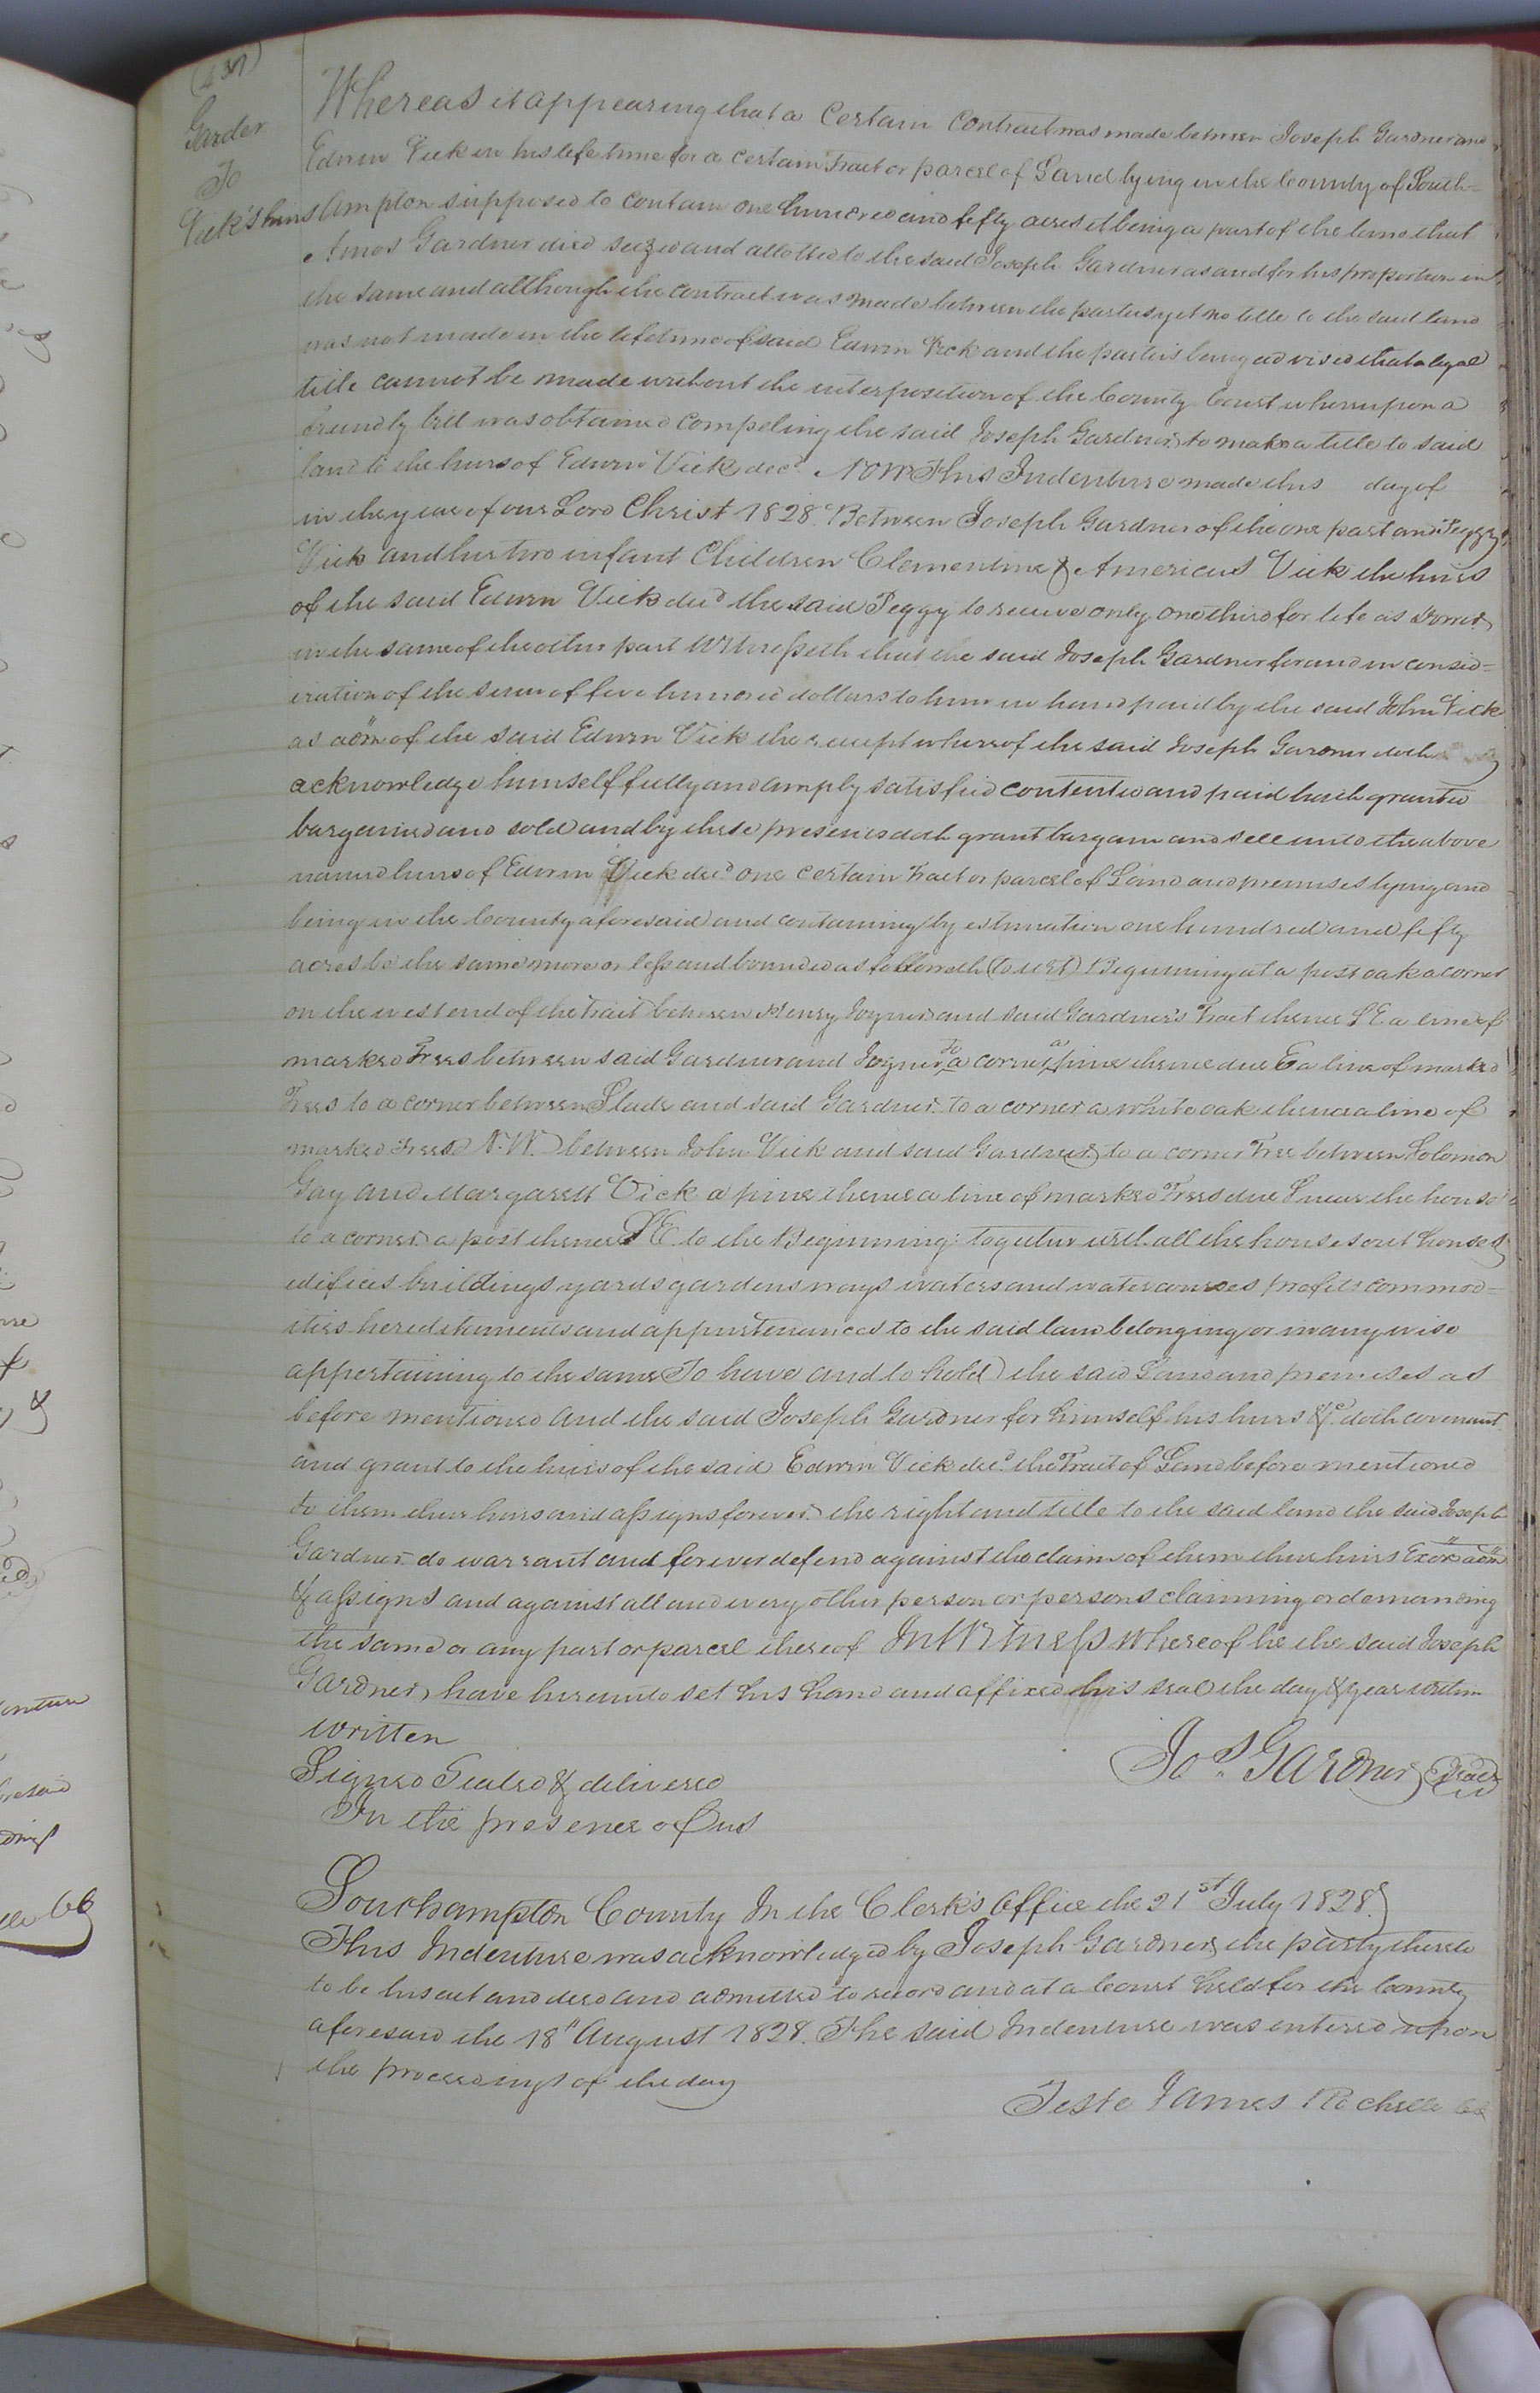 (437)
Garder
To
Vick's heirs
Whereas it appearing that a Certain Contract was made between Joseph Gardner and
Edwin Vick in his life time for a certain Tract or parcel of Land lying in the County of South=
Ampton supposed to contain one hundred and fifty acres it being a part of the land that
Amos Gardner died seized and allotted to the said Joseph Gardner as and for his proportion in
the same and although the contract was made between the parties yet no title to the said land
was not made in the life time of said Edwin Vick and the parties being advised that a legal
title cannot be made without the interposition of the County Court whereupon a
friendly bill was obtained compeling the said Joseph Gardner to make a title to said
land to the heirs of Edwin Vick decd. Now This Indenture made this day of
in the year of our Lord Christ 1828. Between Joseph Gardner of the one part and Peggy
Vick and her two infant Children Clementine & Americus Vick the heirs
of the said Edwin Vick decd the said Peggy to receive only one third for life as Dower
in the same of the other part Witnesseth that the said Joseph Gardner for and in consid=
eration of the sum of five hundred dollars to him in hand paid by the said John Vick
as adm of the said Edwin Vick the receipt whereof the said Joseph Gardner doth
acknowledge himself fully and amply satisfied contented and paid hath granted
bargained and sold and by these presents doth grant bargain and sell unto the above
named heirs of Edwin Vick decd one certain Tract or parcel of Land and premises lying and
being in the County aforesaid and containing by estimation one hundred and fifty
acres be the same more or less and bounded as followeth (to wit) Beginning at a post oak a corner
on the west end of the Trait between Henry Joyner and said Gardner's Tract thence S E a line of
marked Trees between said Gardner and Joyner To a corner a pine thence due E a line of marked
Trees to a corner between Slade and said Gardner to a corner a white oak thence a line of
marked Trees N. W. between John Vick and said Gardner to a corner Tree between Solomon
Gay and Margarett Vick a pine thence a line of marked Trees due S near the house
to a corner a post thence S E. to the Beginning: together with all the houses out houses
edifices buildings yards gardens ways waters and water courses profits commod=
ities hereditaments and appurtenances to the said land belonging or in any wise
appertaining to the same To have and to hold the said Land and premises as
before mentioned and the said Joseph Gardner for himself his heirs &c doth covenant
and grant to the heirs of the said Edwin Vick decd the Tract of Land before mentioned
to them their heirs and assigns forever the right and title to the said land the said Joseph
Gardner do warrant and forever defend against the claim of them their heirs Exors adm
& assigns and against all and every other person or persons claiming or demanding
the same or any part or parcel thereof In Witness whereof he the said Joseph
Gardner have hereunto set his hand and affixed his seal the day & year within
written
Jos. Gardner Seal
Signed Sealed & delivered
In the presence of us
Southampton County In the Clerk's Office the 21st July 1828.
This Indenture was acknowledged by Joseph Gardner the party thereto
to be his act and deed and admitted to record and at a Court held for the County
aforesaid the 18" August 1828. The said Indenture was entered upon
the proceedings of the day
Teste James Rochelle CC